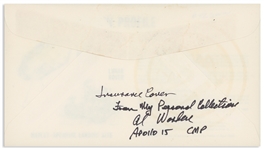 Insurance Cover
From My Personal Collection
Al Worden
Apollo 15 CMP